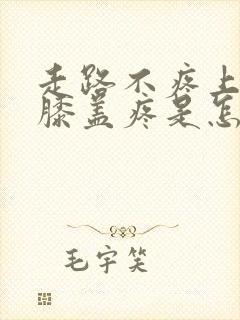 走路不疼上
膝盖疼是怎
毛宇笑